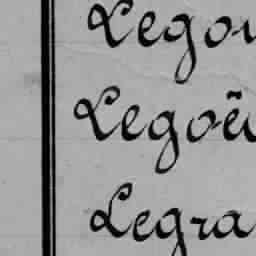 Legou
Legoë
Legra